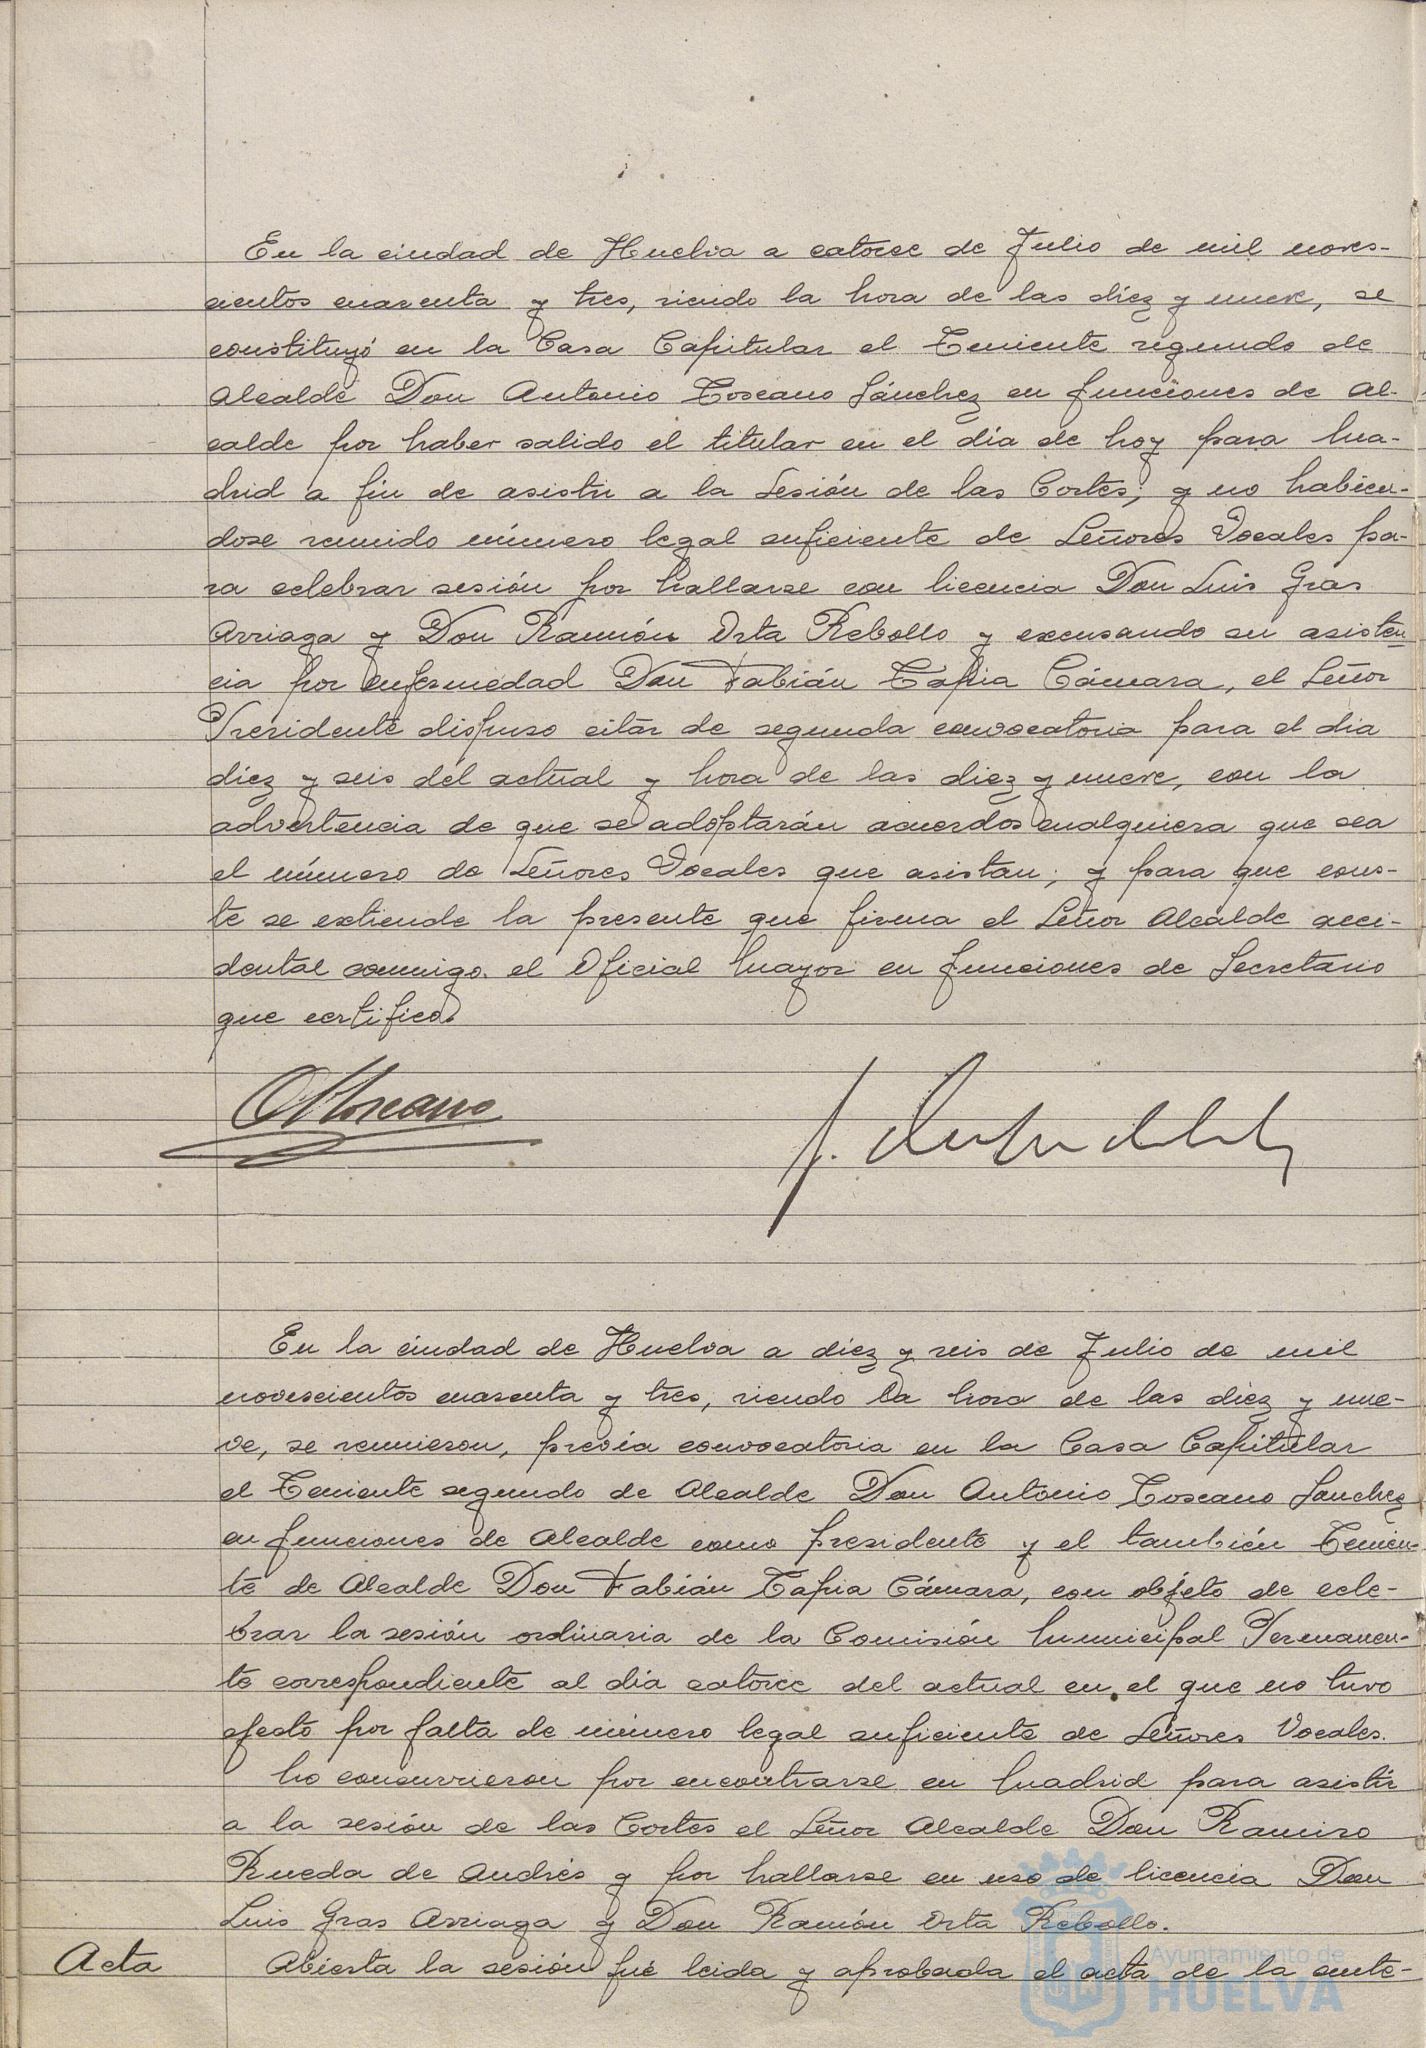 En la ciudad de Huelva a catorce de Julio de mil noves-
cientos cuarenta y tres, siendo la hora de las diez y nueve, se
constituyó en la Casa Capitular el Teniente segundo de
Alcalde Don Antonio Toscano Sánchez en funciones de Al-
calde por haber salido el titular en el día de hoy para Ma-
drid a fin de asistir a la Sesión de las Cortes; y no habién-
dose reunido número legal suficiente de Señores Vocales pa-
ra celebrar sesión por hallarse con licencia Don Luis Gras
Arriaga y Don Ramón Orta Rebollo y excusando su asisten-
cia por enfermedad Don Fabián Tapia Cámara, el Señor
Presidente dispuso citar de segunda convocatoria para el dia
diez y seis del actual y hora de las diez y nueve, con la
advertencia de que se adoptarán acuerdos cualquiera que sea
el número de Señores Vocales que asistan; y para que cons-
te se extiende la presente que firma el Señor Alcalde acci-
dental conmigo el Oficial Mayor en funciones de Secretario
que certifico.
A Toscano
En la ciudad de Huelva a diez y seis de Julio de mil
novescientos cuarenta y tres, siendo la hora de las diez y nue-
ve, se reunieron, previa convocatoria en la Casa Capitular
el Teniente segundo de Alcalde Don Antonio Toscano Sanchez
en funciones de Alcalde como presidente y el también Tenien-
te de Alcalde Don Fabián Tapia Cámara, con objeto de cele-
brar la sesión ordinaria de la Comisión Municipal Permanen-
te correspondiente al día catorce del actual en el que no tuvo
efecto por falta de número legal suficiente de Señores Vocales.
No concurrieron por encontrarse en Madrid para asistir
a la sesión de las Cortes el Señor Alcalde Don Ramiro
Rueda de Andrés y por hallarse en uso de licencia Don
Luis Gras Arriaga y Don Ramón Orta Rebollo.
Acta Abierta la sesión fué leida y aprobada el acta de la ante-
Ayuntamiento de
HUELVA